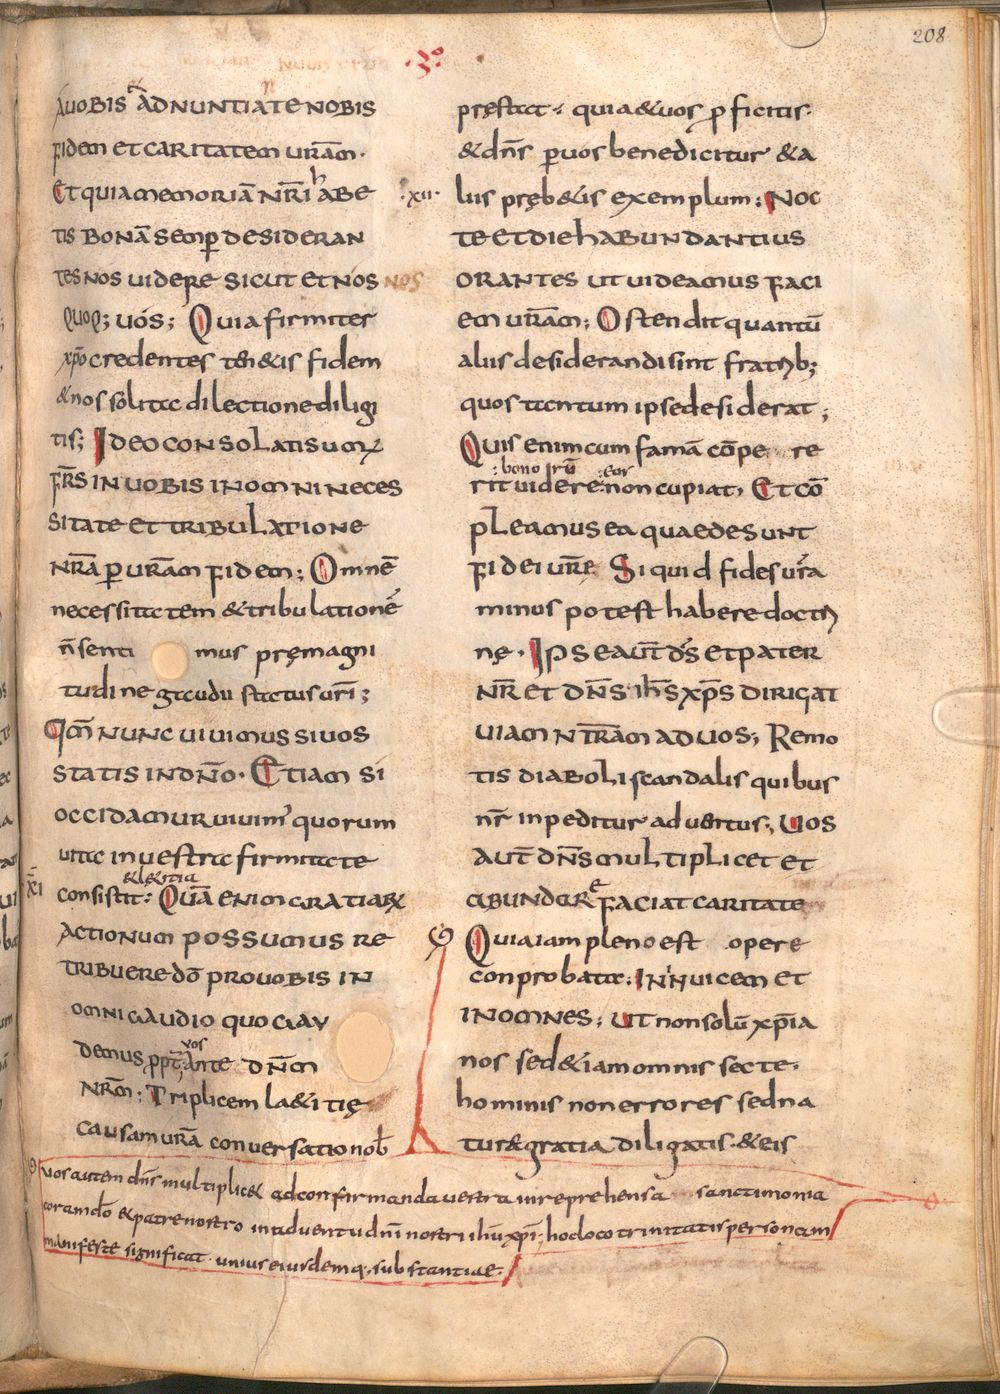 208
·3º·
A UOBIS ADNUNTIATE NOBIS
FIDEM ET CARITATEM URĀM·
Et quia memoriā NR̄I hABE
TIS BONĀ SEMP DESIDERAN
TES NOS UIDERE SICUT ET NOS NOS
QUOQ; UOS; Quia firmiter
xp̄o credentes ten&is fidem
& nos solita dilectione diligi
tis; IDEO CONSOLATI SUM;
FR̄S IN UOBIS IN OMNI NECES
SITATE ET TRIBULATIONE
NR̄A P URĀM FIDEM; Omnē
necessitatem & tribulationē
n̄ senti mus pręmagni
tudine gaudii status ur̄i;
QM̄ NUNC UIUIMUS SI UOS
STATIS IN DN̄O· Etiam si
occidamur uiuim' quorum
uita in uestra firmitate
&l&itia
·x̄i consistit: QUĀ ENIM GRATIARŪ
ACTIONUM POSSUMUS RE
TRIBUERE DŌ PRO UOBIS IN
OMNI GAUDIO QUO GAU
vos
DEMUS PPT; ANTE DN̄M
NR̄M; Triplicem la&itię
causam urā conuersationib
pręstat· quia & uos p ficitis·
& dn̄s p uos benedicitur & a
·xii· liis pręb&is exemplum; NOC
TE ET DIE HABUNDANTIUS
ORANTES UT UIDEAMUS FACI
EM URĀM; Ostendit quantū
aliis desiderandi sint fratrib;
quos tantum ipse desiderat;
Quis enim cum famā cōpe re
:bonorū :eor
rit uidere: non cupiat, Et cō
PLEAMUS EA QUAE DESUNT
FIDEI UR̄E Si quid fides ur̄a
minus potest habere doctri
nę· IPSE AUT̄ D̄S ET PATER
NR̄ ET DN̄S IH̄S XP̄S DIRIGAT
UIAM NTR̄AM AD UOS; Remo
tis diaboli scandalis quibus
nr̄ inpeditur aduentus; UOS
AUT̄ DN̄S MULTIPLICET ET
ABUNDARE FACIAT CARITATE
Quia iam pleno est opere
conprobata: IN INUICEM ET
IN OMNES; Ut non solū xp̄ia
nos sed & iam omnis secte·
hominis non errores sed na
turæ gratia diligatis· & eis
uos autem dn̄s multiplic& ad confirmanda uestra inreprehensa sanctimonia
coram dō & patre nostro in aduentu dn̄i nostri ihū xpī; hoc loco trinitatis personam
manifeste significat· unius eiusdemq; substantiae·